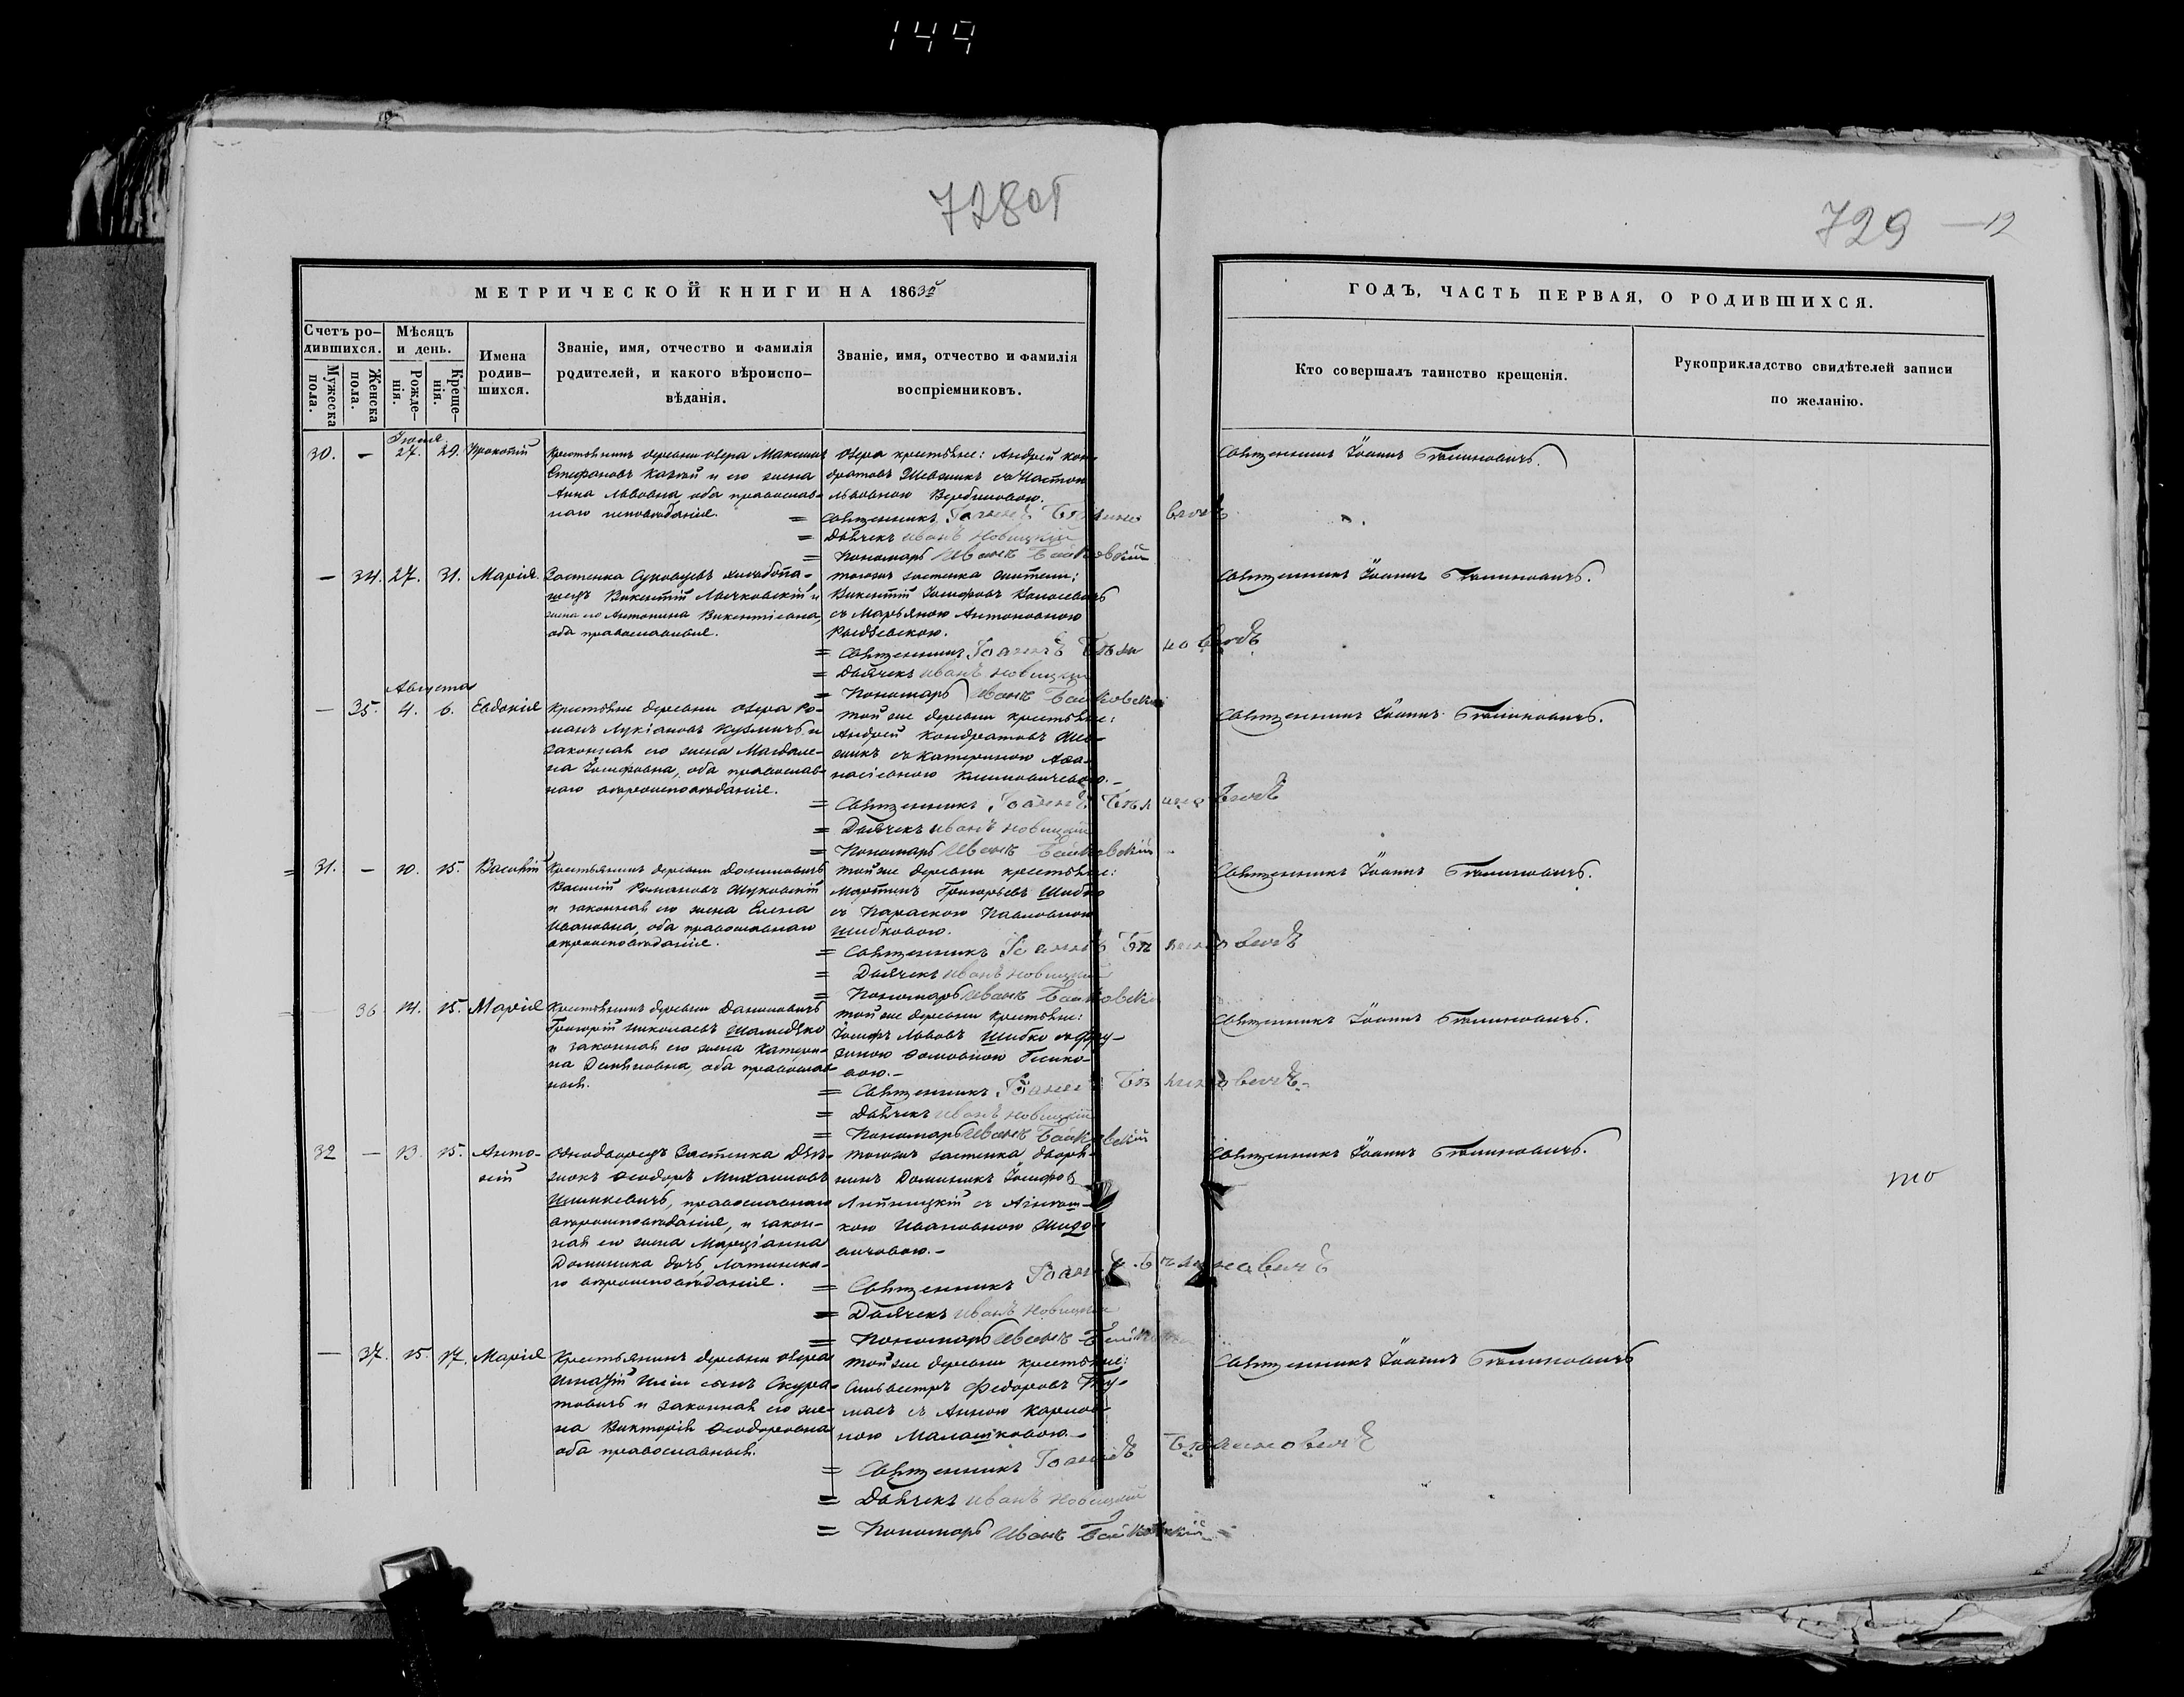 149
728об
729 — 12
МЕТРИЧЕСКОЙ КНИГИ НА 1863й
Счетъ ро-
дившихся.
Мужеска
пола.
Женска
пола.
Мѣсяцъ
и день.
Рожде-
нія.
Креще-
нія.
Имена
родив-
шихся.
Званіе, имя, отчество и фамилія
родителей, и какого вѣроиспо-
вѣданія.
Званіе, имя, отчество и фамилія
воспріемниковъ.
ГОДЪ, ЧАСТЬ ПЕРВАЯ, О РОДИВШИХСЯ.
Кто совершалъ таинство крещенія.
Рукоприкладство свидѣтелей записи
по желанію.
Іюля
30. — 27. 29. Прокопій
Крестьянинъ деревни Озера Максимъ
Стефановъ и его жена
Анна Львовна оба православ-
наго исповѣданія.
Озера крестьяне: Андрей Кон-
дратовъ Шевчикъ съ
Львовною
= Священникъ Іоаннъ Бѣлиновичъ
= Дьячекъ Иванъ Новицкій
= Пономарь Иванъ Байковскій
Священникъ Іоаннъ Бѣлиновичъ.
— 34. 27. 31. Марія.
Застенка
Викентій и
жена его Антонина Викентіевна,
оба православные.
тогожъ застенка жители:
Викентій Іосифовъ
съ Марьяною Антоновною
= Священникъ Іоаннъ Бѣлиновичъ
= Дьячекъ Иванъ Новицкій
= Пономарь Иванъ Байковскій
Священникъ Іоаннъ Бѣлиновичъ.
Августа
— 35. 4. 6. Евдокія
Крестьяне деревни Озера Ро-
манъ Лукіановъ Кузмичъ и
законная его жена Магдале-
на Іосифовна, оба православ-
наго вѣроисповѣданія.
той же деревни крестьяне:
Андрей Кондратовъ Шев-
чикъ съ Катериною Афа-
насіевною Климовичевою.—
= Священникъ Іоаннъ Бѣлиновичъ
= Дьячекъ Иванъ Новицкій
= Пономарь Иванъ Байковскій
Священникъ Іоаннъ Бѣлиновичъ.
31. — 10. 15. Василій
Крестьянинъ деревни
Василій Романовъ Жуковскій
и законная его жена Елена
Ивановна, оба православнаго
вѣроисповѣданія.
той же деревни крестьяне:
Мартинъ Григорьевъ Шибко
съ Параскою Павловною
Шибковою.
= Священникъ Іоаннъ Бѣлиновичъ
= Дьячекъ Иванъ Новицкій
= Пономарь Иванъ Байковскій
Священникъ Іоаннъ Бѣлиновичъ.
36 14. 15. Марія
Крестьянинъ деревни
Григорій Николаевъ
и законная его жена Катери-
на оба православ-
ныя.
той же деревни крестьяне:
Іосифъ Львовъ Шибко съ
вою.—
= Священникъ Іоаннъ Бѣлиновичъ.
= Дьячекъ Иванъ Новицкій
= Пономарь Иванъ Байковскій
Священникъ Іоаннъ Бѣлиновичъ.
32 — 13. 15. Анто-
ній
Однодворецъ Застенка
Ѳеодоръ Михаиловъ
православнаго
вѣроисповѣданія, и закон-
ная его жена Марціанна
Доминика дочь, Латинска-
го вѣроисповѣданія.
тогожъ застенка дворя-
нинъ Доминикъ Іосифовъ
съ
кою Ивановною
= Священникъ Іоаннъ Бѣлиновичъ
= Дьячекъ Иванъ Новицкій
= Пономарь Иванъ Байковскій
Священникъ Іоаннъ Бѣлиновичъ.
то
— 37. 15. 17. Марія
Крестьянинъ деревни Озера
Игнатій Ильи сынъ Скура-
товичъ и законная его же-
на Викторія Ѳеодоровна
оба православныя.
той же деревни крестьяне:
Сильвестръ Федоровъ
съ Анною Карпов-
ною Малашковою.—
= Священникъ Іоаннъ Бѣлиновичъ
= Дьячекъ Иванъ Новицкій
= Пономарь Иванъ Байковскій
Священникъ Іоаннъ Бѣлиновичъ